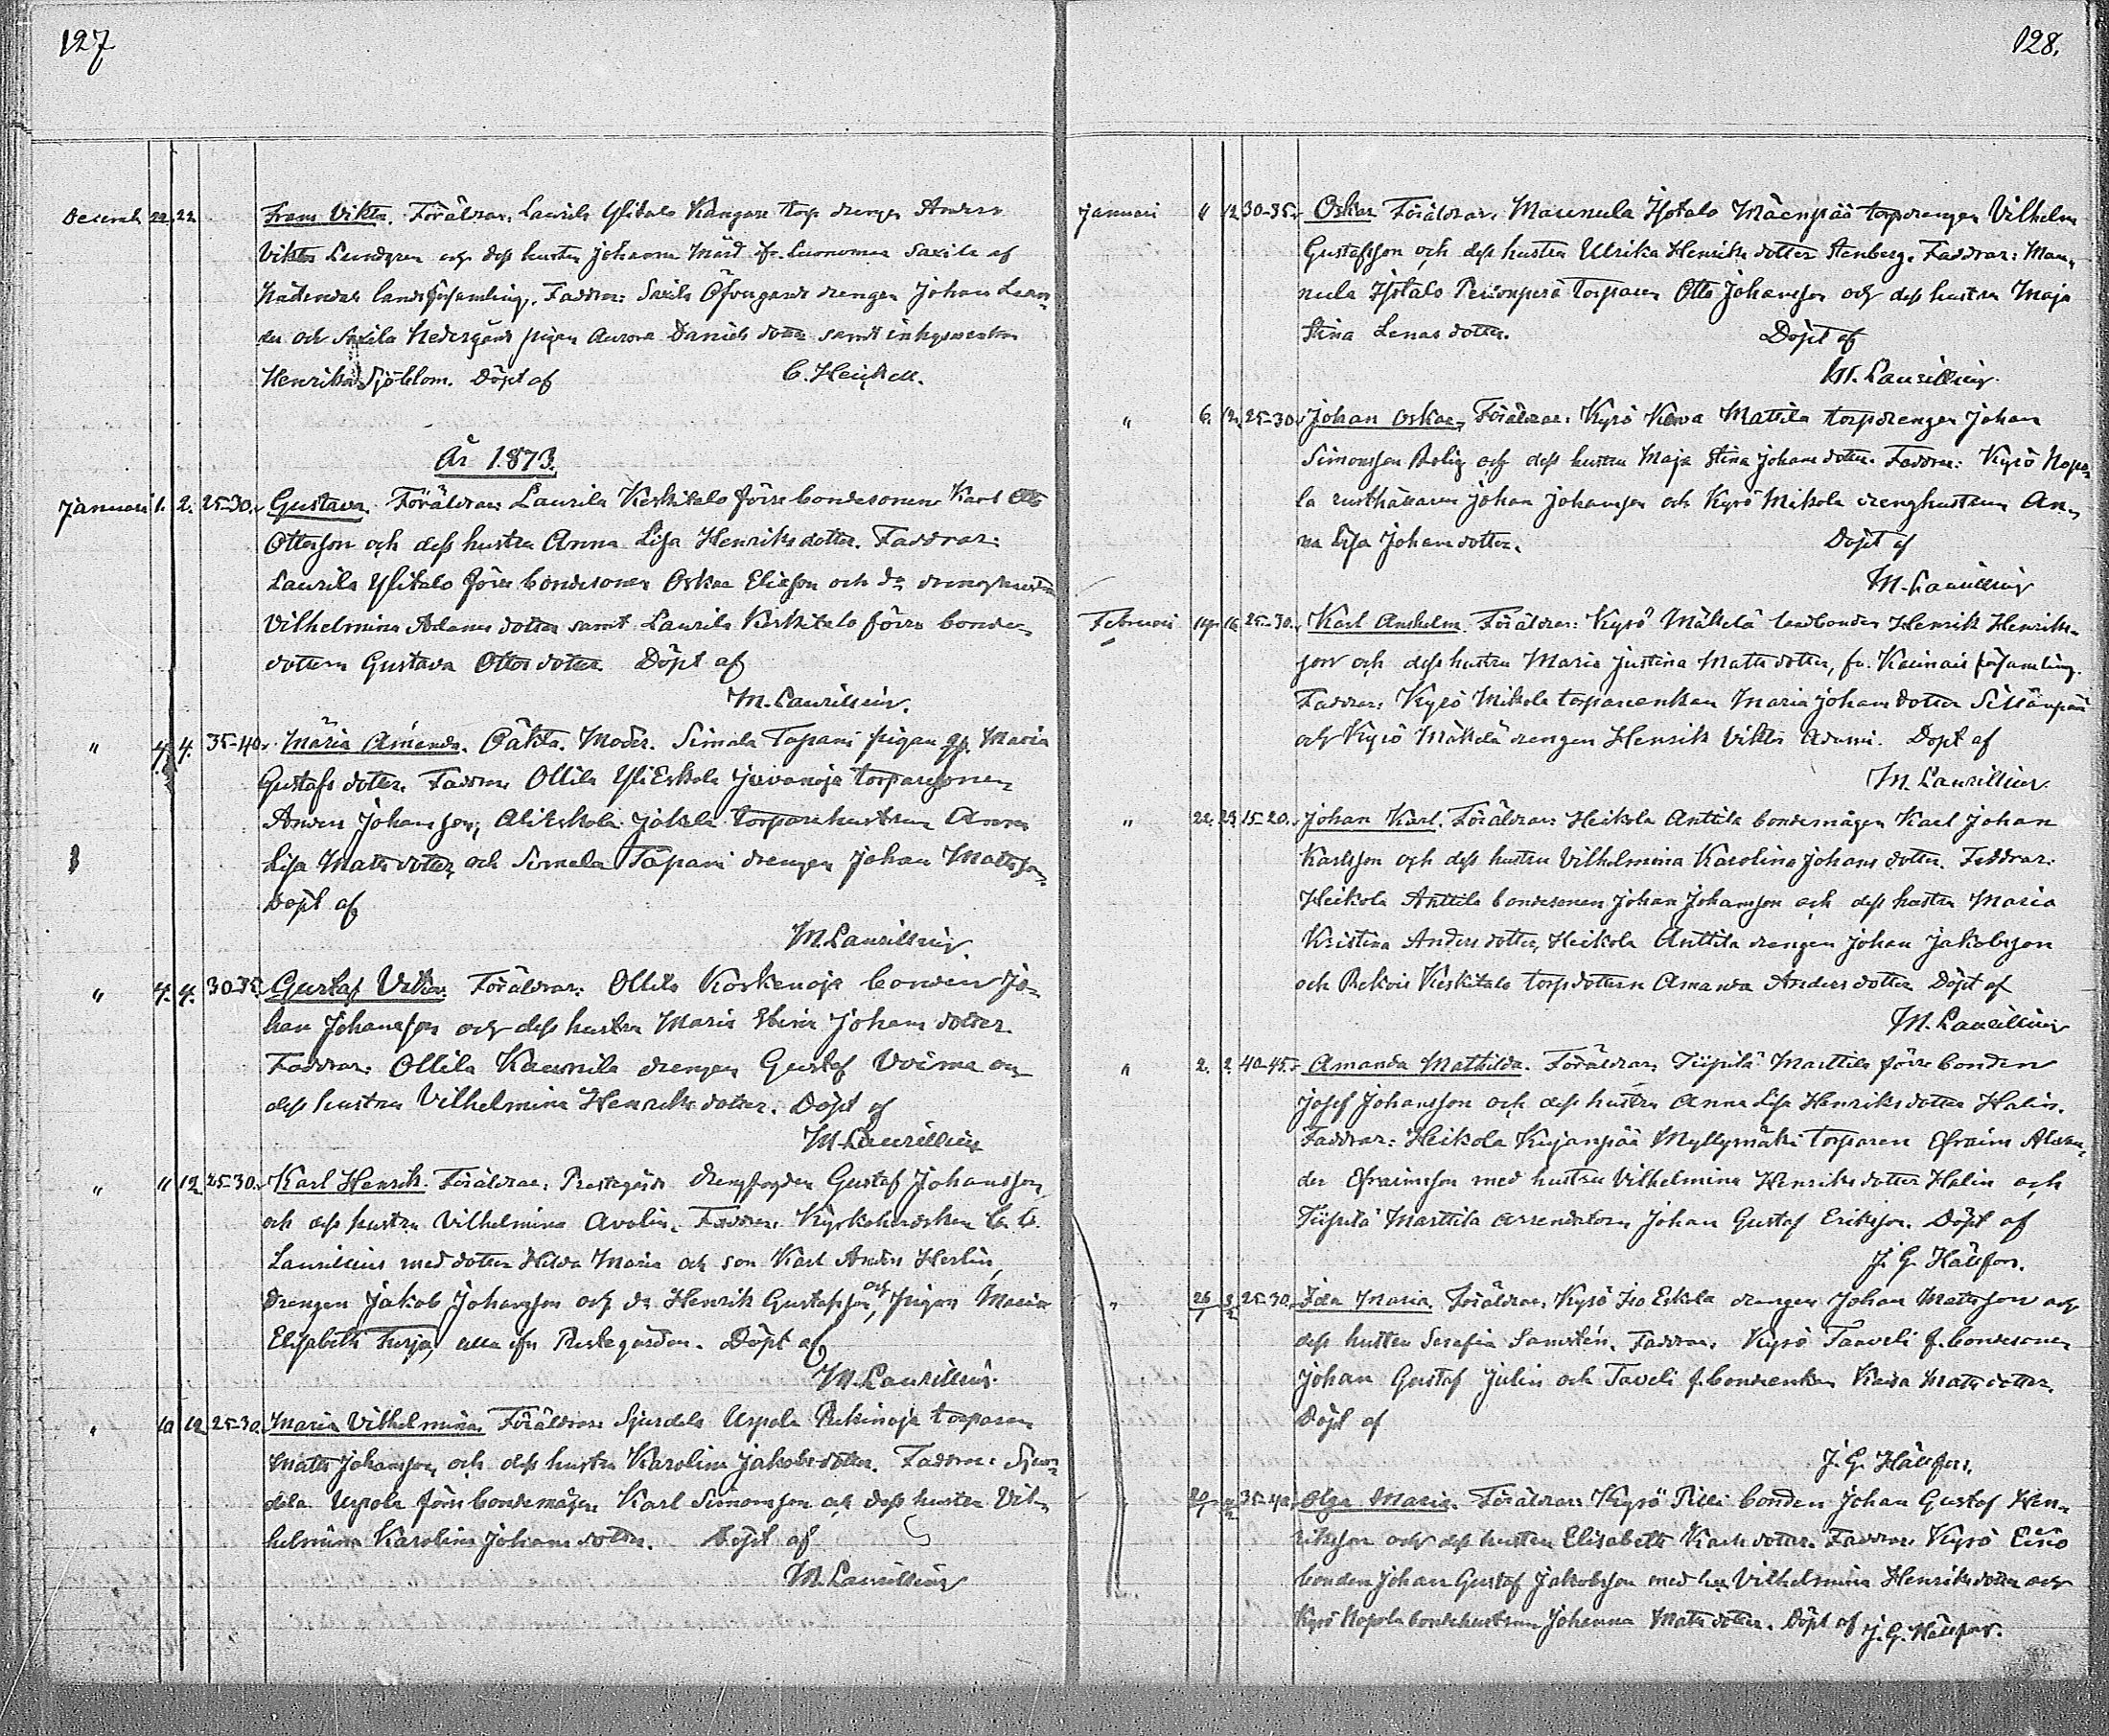 127
Decemb 22. 22. Frans Viktor. Föräldrar: Laurila Ylitalo Kangare torp drengen Anders
Viktor Lundgren och dess hustru Johanna Märd fr. Saxila af
Nådendals landsförsamling. Faddrar: Saxila Öfvergårds drengen Johan Lean-
der och Saxila Nedergårds pigan Aurora Daniels dotter samt inhyses
Henrika Sjöblom. Döpt af C. Heikell.
År 1873.
Januari 1. 2. 25-30. Gustava. Föräldrar: Laurila Keskitalo förre bondesonen Karl Otto
Ottosson och dess hustru Anna Lisa Henriksdotter. Faddrar:
Laurila Ylitalo förre bondesonen Oskar Eliasson och do dreng hustrun
Vilhelmina Adams dotter samt Laurila Keskitalo förre bonde-
dottern Gustava Ottos dotter. Döpt af
M. Laurillius.
" 4. 4. 35-40. Maria Amanda. Oäkta. Moder: Simala Tapani pigan Maria
Gustafs dotter. Faddrar: Ollila YliEskola Juvanoja torparesonen
Anders Johansson, AliEskola Jakala torparehustrun Anna
Lisa Mats dotter och Simala Tapani drengen Johan Mattsson.
Döpt af
M. Laurillius
" 4. 4. 30-35. Gustaf Viktor. Föräldrar: Ollila Koskenoja bonden Jo-
han Johansson och dess hustru Maria Johans dotter.
Faddrar: Ollila Kaunila drengen Gustaf Voima och
dess hustru Vilhelmina Henriks dotter. Döpt af
M. Laurillius
" " 12 25-30. Karl Henrik. Föräldrar: Prestegårds drengfogden Gustaf Johansson
och dess hustru Vilhelmina Avolin. Faddrar: Kyrkoherdskan
Laurillius med dotter Hilda Maria och son Karl Anders Herlin,
drengen Jakob Johansson och do Henrik Gustafsson, och pigan Maria
Elisabeth Turja, alla ifr. Prestegården. Döpt af
M. Laurillius.
" 10 12 25-30. Maria Vilhelmina. Föräldrar: Sjurdala Uspola Rukinoja torparen
Matts Johansson och dess hustru Karolina Jakobsdotter. Faddrar: Sjur-
dala Uspola förre bondemågen Karl Simonsson och dess hustru Vil-
helmina Karolina Johans dotter. Döpt af
M. Laurillius
128.
Januari " 12 30-35. Oskar. Föräldrar: Maunula Isotalo Mäenpää torpdrengen Vilhelm
Gustafsson och dess hustru Ulrika Henriks dotter Stenberg. Faddrar: Mau-
nula Isotalo torparen Otto Johansson och dess hustru Maja
Stina Lenas dotter. Döpt af
M. Laurillius.
" 6. 12. 25-30. Johan Oskar. Föräldrar: Kyrö Mattila torpdrengen Johan
Simonsson Rolig och dess hustru Maja Stina Johans dotter. Faddrar: Kyrö Nopo-
la rusthållaren Johan Johansson och Kyrö Mikola drenghustrun An-
na Lisa Johansdotter. Döpt af
M. Laurillius
Februari 14. 16. 25-30. Karl Anshelm. Föräldrar: Kyrö Mäkelä landbonden Henrik Henriks-
son och dess hustru Maria Justina Matts dotter, fr. Karinais församling.
Faddrar: Kyrö Mikola torpareenkan Maria Johans dotter Sillänpää
och Kyrö Mäkelä drengen Henrik Viktor Adami. Döpt af
M. Laurillius
" 22. 23. 15-20. Johan Karl. Föräldrar: Heikola Anttila bondemågen Karl Johan
Karlsson och dess hustru Vilhelmina Karolina Johans dotter. Faddrar:
Heikola Anttila bondesonen Johan Johansson och dess hustru Maria
Kristina Anders dotter, Heikola Anttila drengen Johan Jakobsson
och Rekois Keskitalo torpdottern Amanda Anders dotter. Döpt af
M. Laurillius
" 2. 2. 40-45. Amanda Mathilda. Föräldrar: Tiipilä Marttila förre bonden
Josef Johansson och dess hustru Anna Lisa Henriksdotter Halin.
Faddrar: Heikola Kujanpää Myllymäki torparen Efraim Alexan-
der Efraimsson med hustru Vilhelmina Henriksdotter Halin och
Tiipilä Marttila arrendatorn Johan Gustaf Eriksson. Döpt af
J. G. Hällfors.
" 26/1 2/2 25-30. Ida Maria. Föräldrar: Kyrö Iso Eskola drengen Johan Mattsson och
dess hustru Serafia Samstén. Faddrar: Kyrö Taaveli f. bondesonen
Johan Gustaf Julin och Taveli f. bondeenkan Kaisa Mattsdotter.
Döpt af
J. G. Hällfors.
35-40. Olga Maria. Föräldrar: Kyrö Pilli bonden Johan Gustaf Hen-
riksson och dess hustru Elisabeth Karls dotter. Faddrar: Kyrö Eino
bonden Johan Gustaf Jakobsson med hu Vilhelmina Henriksdotter och
Kyrö Nopola bondehustrun Johanna Matts dotter. Döpt af J. G. Hällfors.